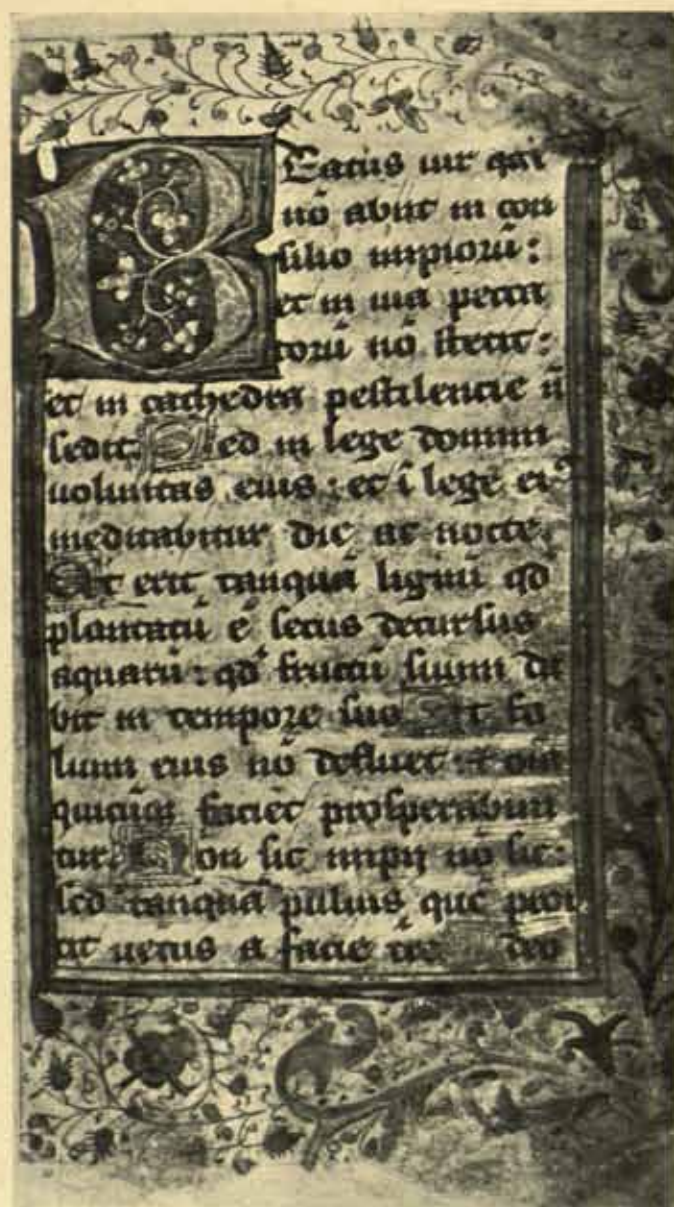 Beatus uir qui
nō abiit in con
silio impiorū:
et in uia pecca
torū nō stetit:
et in cathedra pestilencie n̄
sedit. Sed in lege domini
uoluntas eius: et ī lege eiꝰ
meditabitur die ac nocte.
Et erit tanquā lignū qd̄
plantatū ē secus decursus
aquarū: qd̄ fructū suum da
bit in tempore suo Et fo
lium eius nō defluet: ⁊ oīa
quecūqꝫ faciet prosperabun
tur. Non sic impij nō sic:
sed tanquā puluis que proi
cit uētus a facie tr̄e Ideo